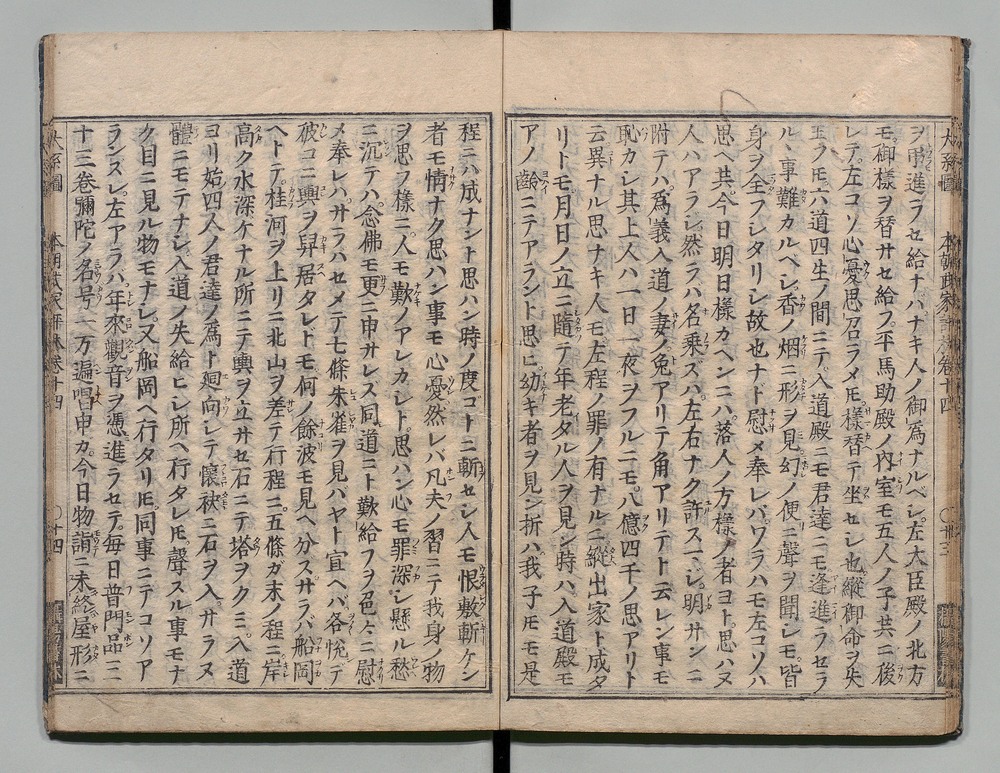 ヲ弔進ラセ給ナハナキ人ノ御為ナルベシ左大臣殿ノ北方
モ御様ヲ替サセ給フ平馬助殿ノ内室モ五人ノ子共ニ後
レテ左コソ心憂思召ラメ𪜈様替テ坐セシ也縦御命ヲ失
玉ラ𪜈六道四生ノ間ニテ入道殿ニモ君達ニモ逢進ラセラ
ルヽ事難カルベシ香ノ烟ニ形ヲ見幻ノ便ニ聲ヲ聞シモ皆
身ヲ全フシタリレ故也ナド慰メ奉レバワラハモ左コソハ
思ヘ共今日明日様カヘンニハ落人ノ方様ノ者ヨト思ハヌ
人ハアラシ然ラハ名乗ズハ左右ナク許スマシ明サンニ
附テハ為義入道ノ妻ノ兎アリテ角アリテト云レン事モ
恥カシ其上人ハ一日一夜ヲフルニモ八億四千ノ思アリト
云異ナル思ナキ人モ左程ノ罪ノ有ナルニ縦出家ト成タ
リト𪜈月日ノ立ニ隨テ年老タル人ヲ見ン時ハ入道殿モ
アノ齢ニテアラント思ヒ幼キ者ヲ見ン折ハ我子𪜈モ是
程ニハ成ナント思ハン時ノ度ゴトニ斬セシ人モ恨敷斬ケン
者モ情ナク思ハン事モ心憂然レバ凡夫ノ習ニテ我身ノ物
ヲ思フ様ニ人モ歎ノアレカシト思ハン心モ罪深シ懸ル愁
ニ沉テハ念佛モ更ニ申サレス同道ニト歎給フヲ色々ニ慰
メ奉レハサラハセメテ七條朱雀ヲ見ハヤト宣ヘバ各悦デ
彼コニ輿ヲ舁居タレトモ何ノ餘波モ見ヘ分スサラバ船岡
ヘトテ桂河ヲ上リニ北山ヲ差テ行程ニ五條ガ末ノ程ニ岸
高ク水深ケナル所ニテ輿ヲ立サセ石ニテ塔ヲクミ入道
ヨリ始四人ノ君達ノ為ト廻向シテ懐袂ニ石ヲ入サラヌ
體ニモテナシ入道ノ失給ヒシ所ヘ行タレ𪜈聲スル事モナ
ク目ニ見ル物モナシ又船岡ヘ行タリ𪜈同事ニテコソア
ランスレ左アラハ年來觀音ヲ憑進ラセテ毎日普門品三
十三巻彌陀ノ名号一万遍唱申カ今日物詣ニ未終屋形ニ